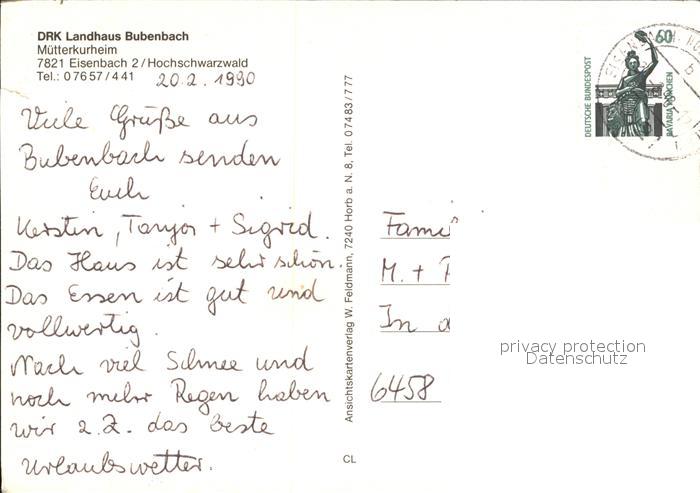 DRK Landhaus Bubenbach
Mütterkurheim
7821 Eisenbach 2/Hochschwarzwald
Tel.: 07657/441
20.2.1990
Viele Grüße aus
Bubenbach senden
Euch
Kerstin, Tanja + Sigrid.
Das Haus ist sehr schön.
Das Essen ist gut und
vollwertig.
Nach viel Schnee und
noch mehr Regen haben
wir z.Z. das beste
Urlaubswetter.
Ansichtskartenverlag W. Feldmann, 7240 Horb a. N. 8, Tel. 07483/777
CL
DEUTSCHE BUNDESPOST
60
BAVARIA MÜNCHEN
Fami
M. +
In
6458
privacy protection
Datenschutz